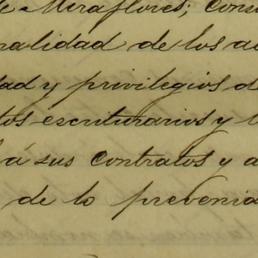 e Miraflores; Cons
ralidad de los ac
dad y privilegios d
tos escriturarios y
á sus contratos y a
de lo prevenid